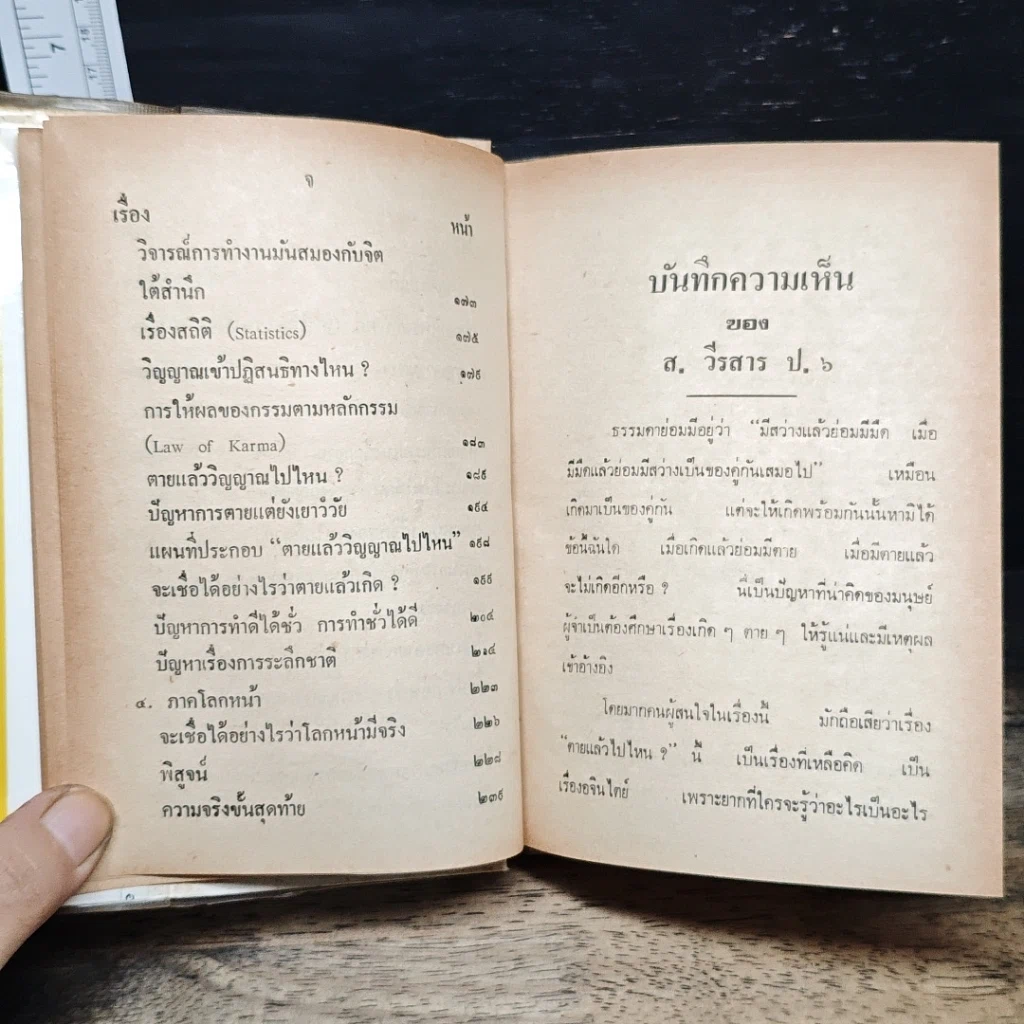 7
18
17
จ
เรื่อง หน้า
วิจารณ์การทำงานมันสมองกับจิต
ใต้สำนึก ๑๗๓
เรื่องสถิติ (Statistics) ๑๗๕
วิญญาณเข้าปฏิสนธิทางไหน ? ๑๗๙
การให้ผลของกรรมตามหลักกรรม
(Law of Karma) ๑๘๓
ตายแล้ววิญญาณไปไหน ? ๑๘๙
ปัญหาการตายแต่ยังเยาว์วัย ๑๙๔
แผนที่ประกอบ “ตายแล้ววิญญาณไปไหน” ๑๙๘
จะเชื่อได้อย่างไรว่าตายแล้วเกิด ? ๑๙๙
ปัญหาการทำดีได้ชั่ว การทำชั่วได้ดี ๒๐๔
ปัญหาเรื่องการระลึกชาติ ๒๑๔
๔. ภาคโลกหน้า ๒๒๓
จะเชื่อได้อย่างไรว่าโลกหน้ามีจริง ๒๒๖
พิสูจน์ ๒๒๘
ความจริงขั้นสุดท้าย ๒๓๙
บันทึกความเห็น
ของ
ส. วีรสาร ป. ๖
ธรรมดาย่อมมีอยู่ว่า “มีสว่างแล้วย่อมมีมืด เมื่อ
มีมืดแล้วย่อมมีสว่างเป็นของคู่กันเสมอไป” เหมือน
เกิดมาเป็นของคู่กัน แต่จะให้เกิดพร้อมกันนั้นหามิได้
ข้อนี้ฉันใด เมื่อเกิดแล้วย่อมมีตาย เมื่อมีตายแล้ว
จะไม่เกิดอีกหรือ ? นี่เป็นปัญหาที่น่าคิดของมนุษย์
ผู้จำเป็นต้องศึกษาเรื่องเกิด ๆ ตาย ๆ ให้รู้แน่และมีเหตุผล
เข้าอ้างอิง
โดยมากคนผู้สนใจในเรื่องนี้ มักถือเสียว่าเรื่อง
“ตายแล้วไปไหน ?” นี้ เป็นเรื่องที่เหลือคิด เป็น
เรื่องอจินไตย์ เพราะยากที่ใครจะรู้ว่าอะไรเป็นอะไร